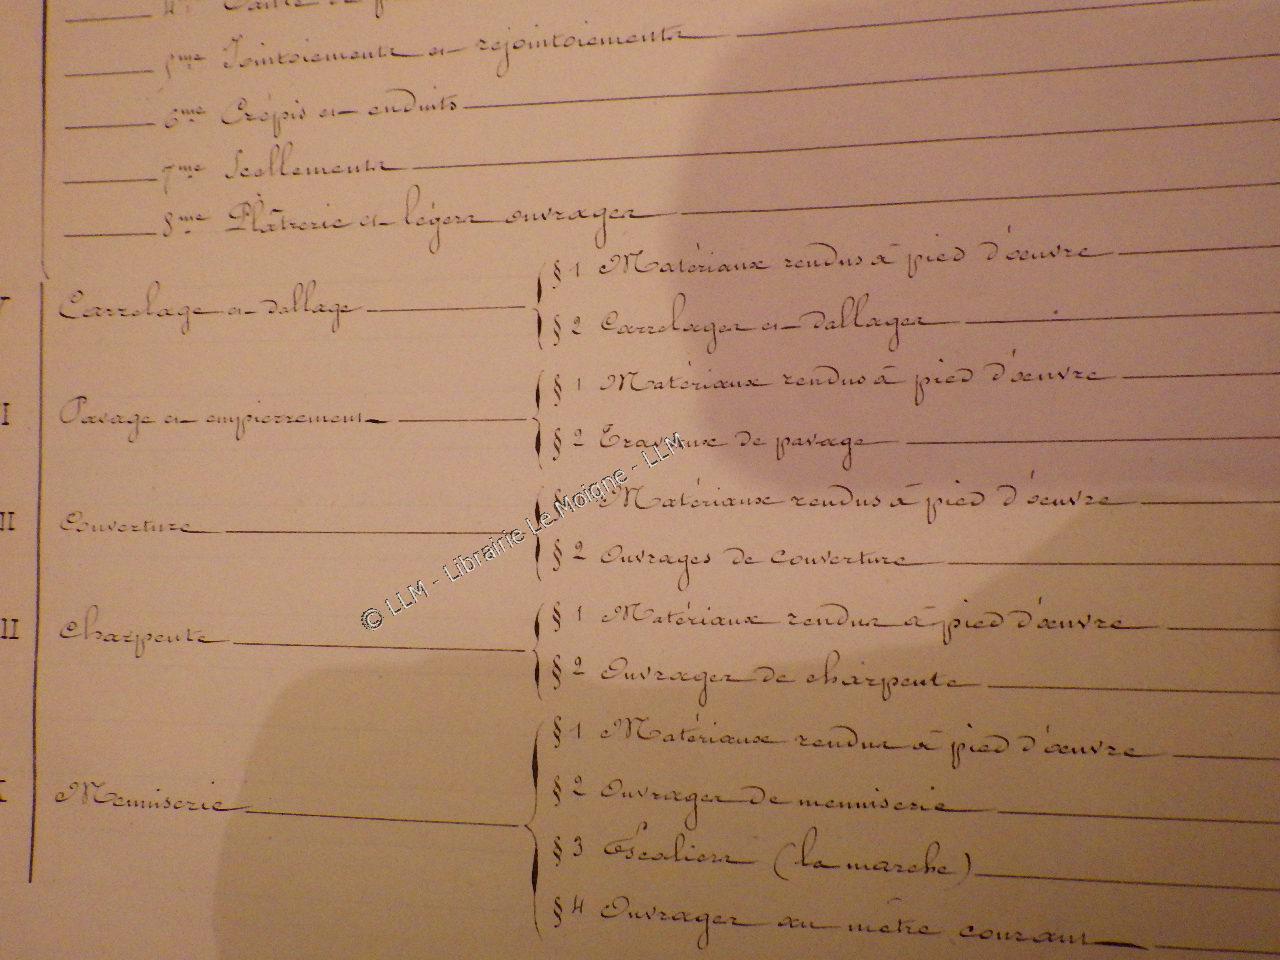 5me Jointoiements et rejointoiements
6me Crépis et enduits
7me Scellements
8me Plâtrerie et légers ouvrages
§ 1 Matériaux rendus à pied d'œuvre
Carrelage et dallage
§ 2 Carrelages et dallages
§ 1 Matériaux rendus à pied d'œuvre
I Pavage et empierrement
§ 2 Travaux de pavage
§ 1 Matériaux rendus à pied d'œuvre
II Couverture
§ 2 Ouvrages de couverture
§ 1 Matériaux rendus à pied d'œuvre
II Charpente
§ 2 Ouvrages de charpente
§ 1 Matériaux rendus à pied d'œuvre
§ 2 Ouvrages de menuiserie
Menuiserie
§ 3 Escaliers (la marche)
§ 4 Ouvrages au mètre courant
© LLM - Librairie Le Moigne - LLM